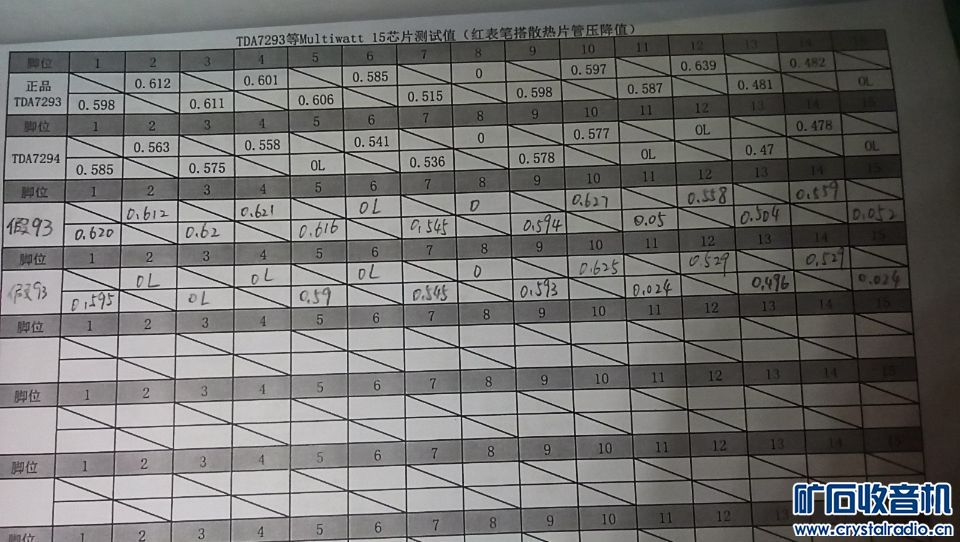 TDA7293等Multiwatt 15芯片测试值（红表笔搭散热片管压降值）
脚位 1 2 3 4 5 6 7 8 9 10 11 12 13 14
正品 0.612 0.601 0.585 0 0.597 0.639 0.482
TDA7293 0.598 0.611 0.606 0.515 0.598 0.587 0.481 OL
脚位 1 2 3 4 5 6 7 8 9 10 11 12 13 14 15
0.563 0.558 0.541 0 0.577 OL 0.478
TDA7294
0.585 0.575 OL 0.536 0.578 OL 0.47 OL
脚位 1 2 3 4 5 6 7 8 9 10 11 12 13 14 15
0.612 0.621 OL 0 0.627 0.558 0.559
假93
0.620 0.62 0.616 0.545 0.594 0.05 0.504 0.052
脚位 1 2 3 4 5 6 7 8 9 10 11 12 13 14 15
OL OL OL 0 0.625 0.529 0.527
假93
0.595 OL 0.59 0.545 0.593 0.024 0.496 0.024
脚位 1 2 3 4 5 6 7 8 9 10 11 12 13 14 15
脚位 1 2 3 4 5 6 7 8 9 10 11 12 13 14 15
脚位 1 2 3 4 5 6 7 8 9 10 11 12 13 14 15
脚位 1 2 3 4 5 6 7 8 9 10 11 12
矿石收音机
www.crystalradio.cn